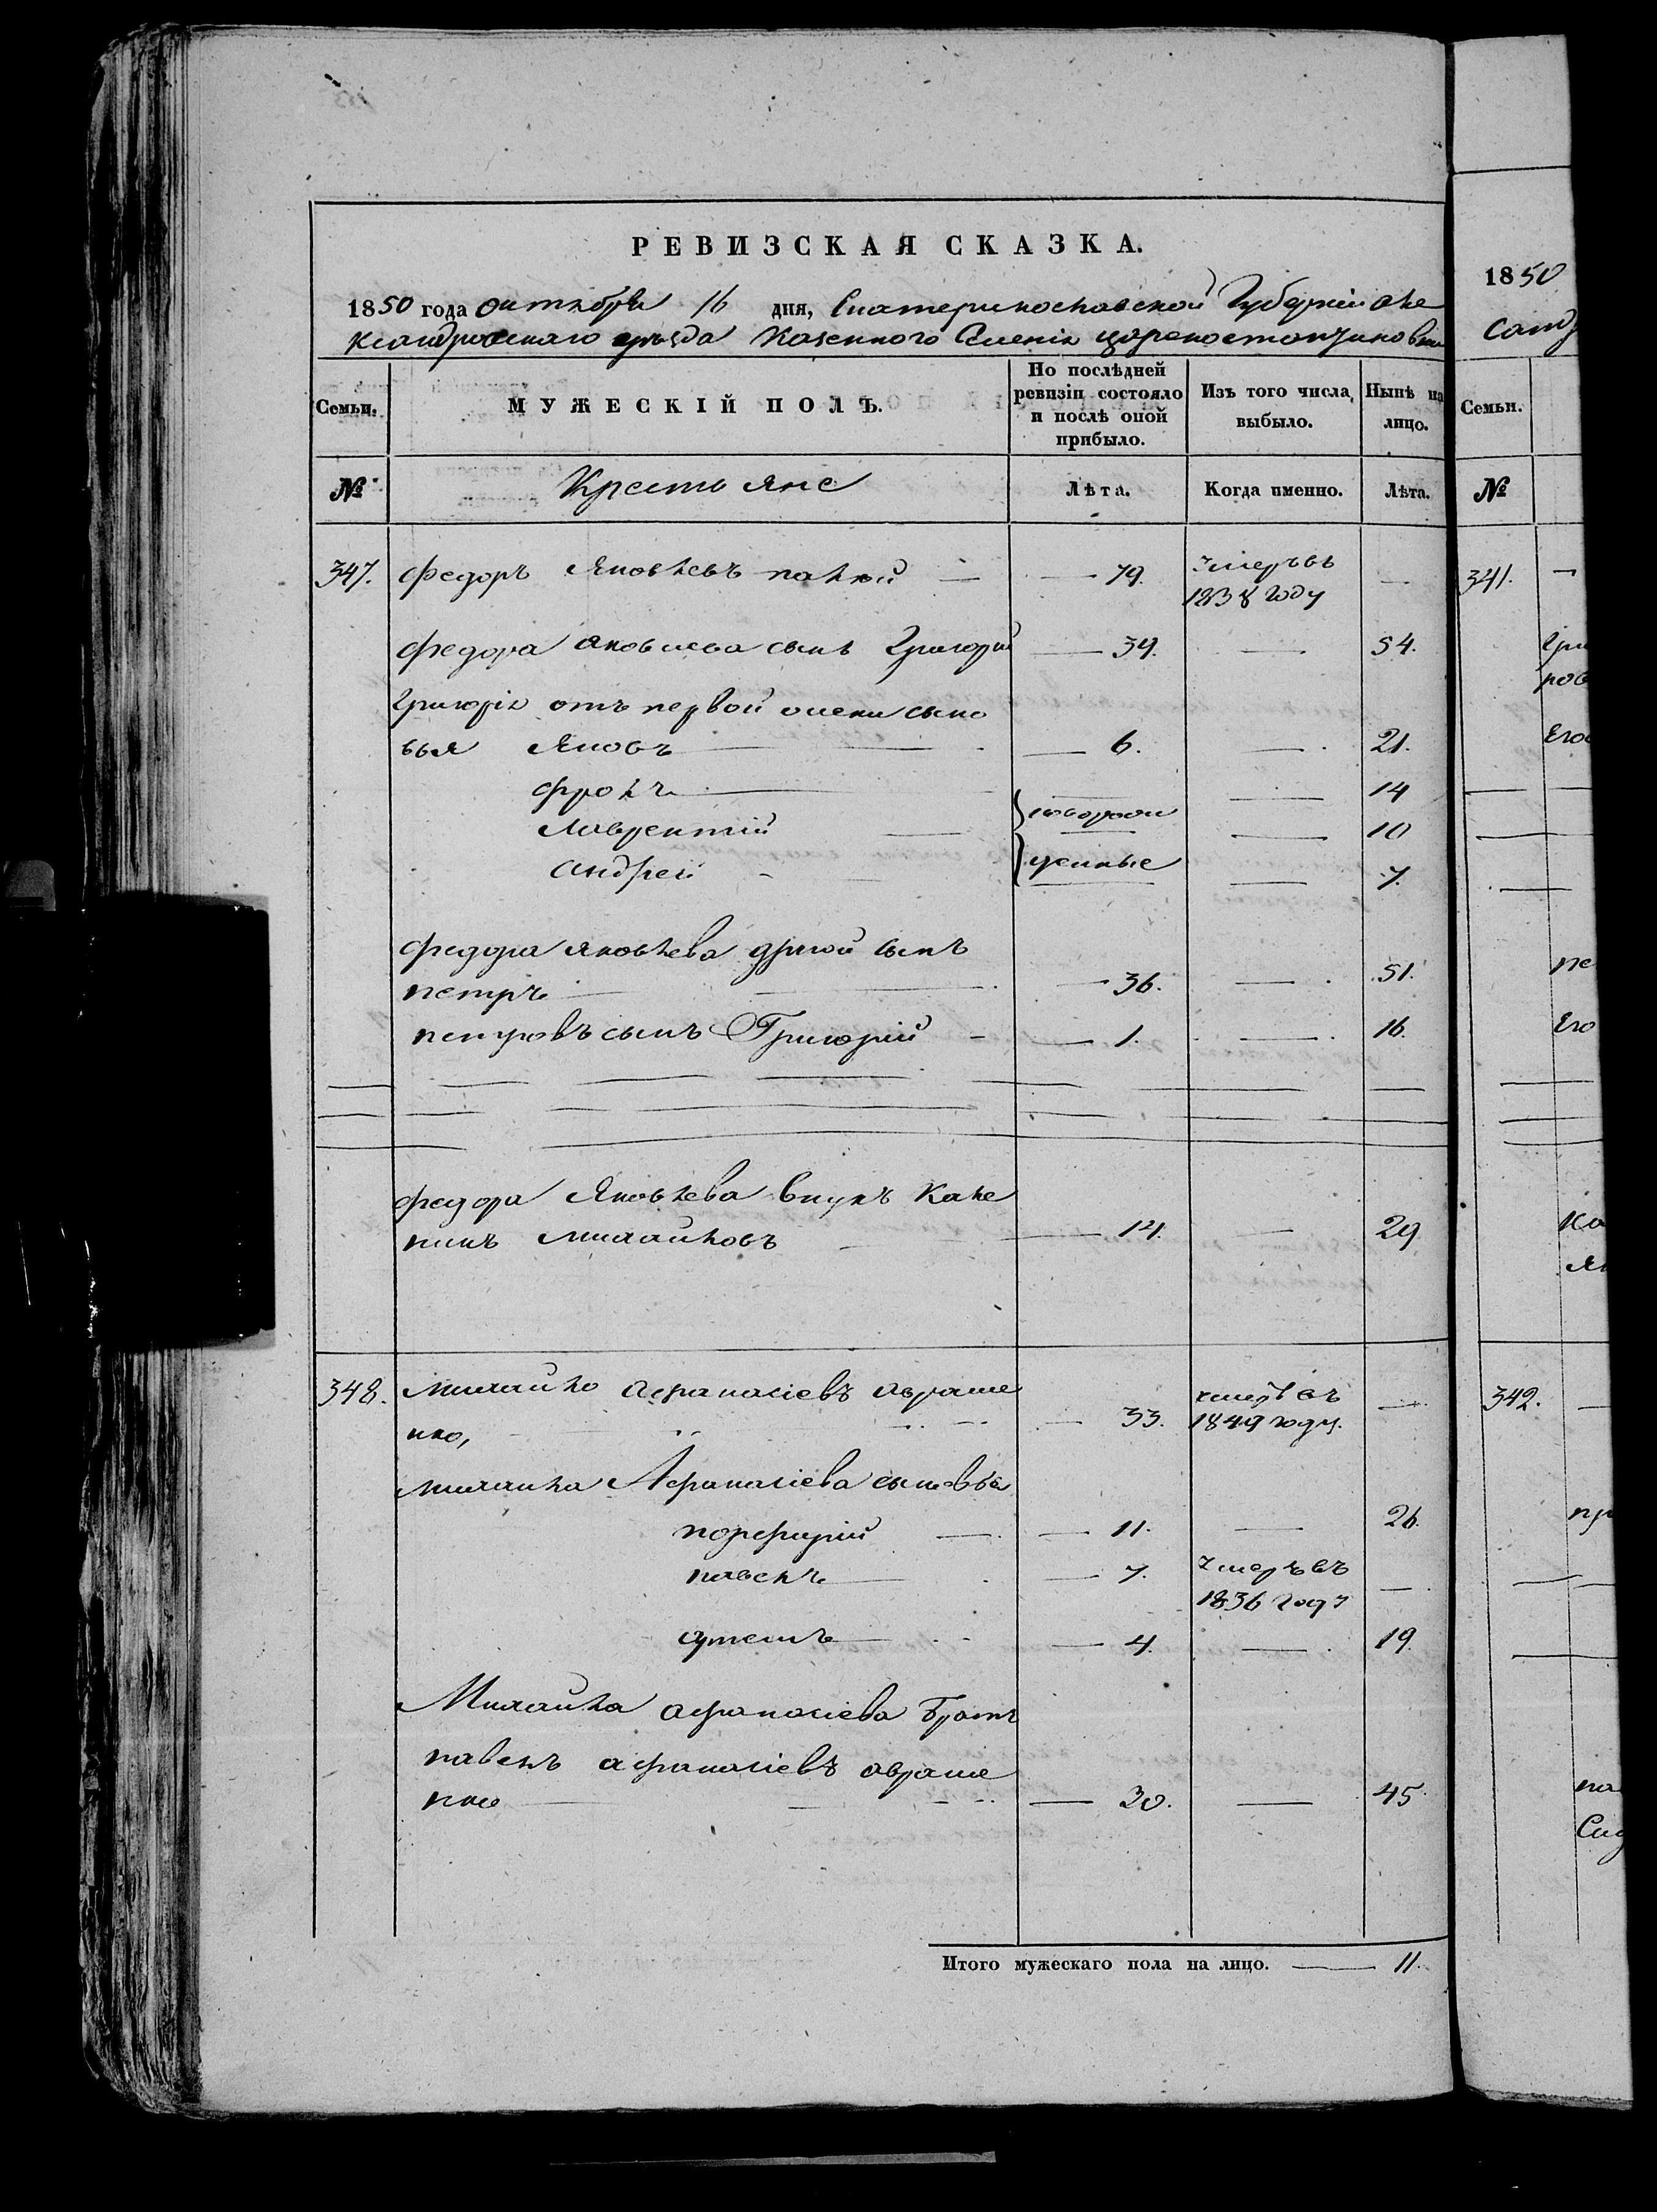 РЕВИЗСКАЯ СКАЗКА.
1850 года октября 16 дня, Екатеринославской Губерніи Але
ксандровскаго уѣзда Казенного Селенія Царекостантиновки
Семьи. МУЖЕСКІЙ ПОЛЪ. По послѣдней ревизіи состояло и послѣ оной прибыло. Изъ того числа выбыло. Нынѣ на лицо.
№ Крестьяне Лѣта. Когда именно. Лѣта.
347. Федоръ Яковлевъ — 79. умеръ въ 1838 году —
Федора Яковлева сынъ Григорій — 39. — 54.
Григорія отъ первой жены сыно
вья Яковъ — 6. — 21.
Фролъ — 14
Лаврентій — 10
Андрей — 7.
новорож
денные
Федора Яковлева другой сынъ
Петръ — 36. — 51.
Петровъ сынъ Григорій — 1. — 16.
Федора Яковлева внукъ Кале
никъ Михайловъ — 14. — 29
348. Михайло Афанасіевъ Авраме
нко, — 33. умеръ въ 1849 году. —
Михайла Афанасіева сыновья
Порфирій — 11. — 26.
Павелъ — 7. умеръ въ 1836 году —
Артемъ — 4. — 19.
Михайла Афанасіева братъ
Павелъ Афанасіевъ Авраме
нко — 30. — 45.
Итого мужескаго пола на лицо. — 11.
1850
Семьи.
№
341. —
Его
342. —